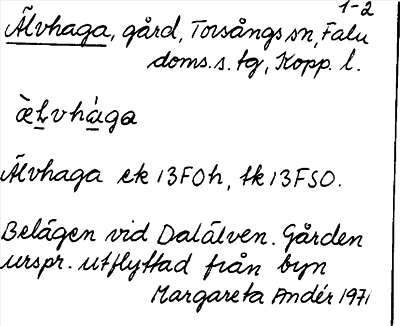 1-2
Älvhaga, gård, Torsångs sn, Falu
doms.s. tg, Kopp. l.
ὰ̀Lvhàga
Älvhaga ek 13F0h, tk 13FSO.
Belägen vid Dalälven. Gården
urspr. utflyttad från byn
Margareta Andér 1971